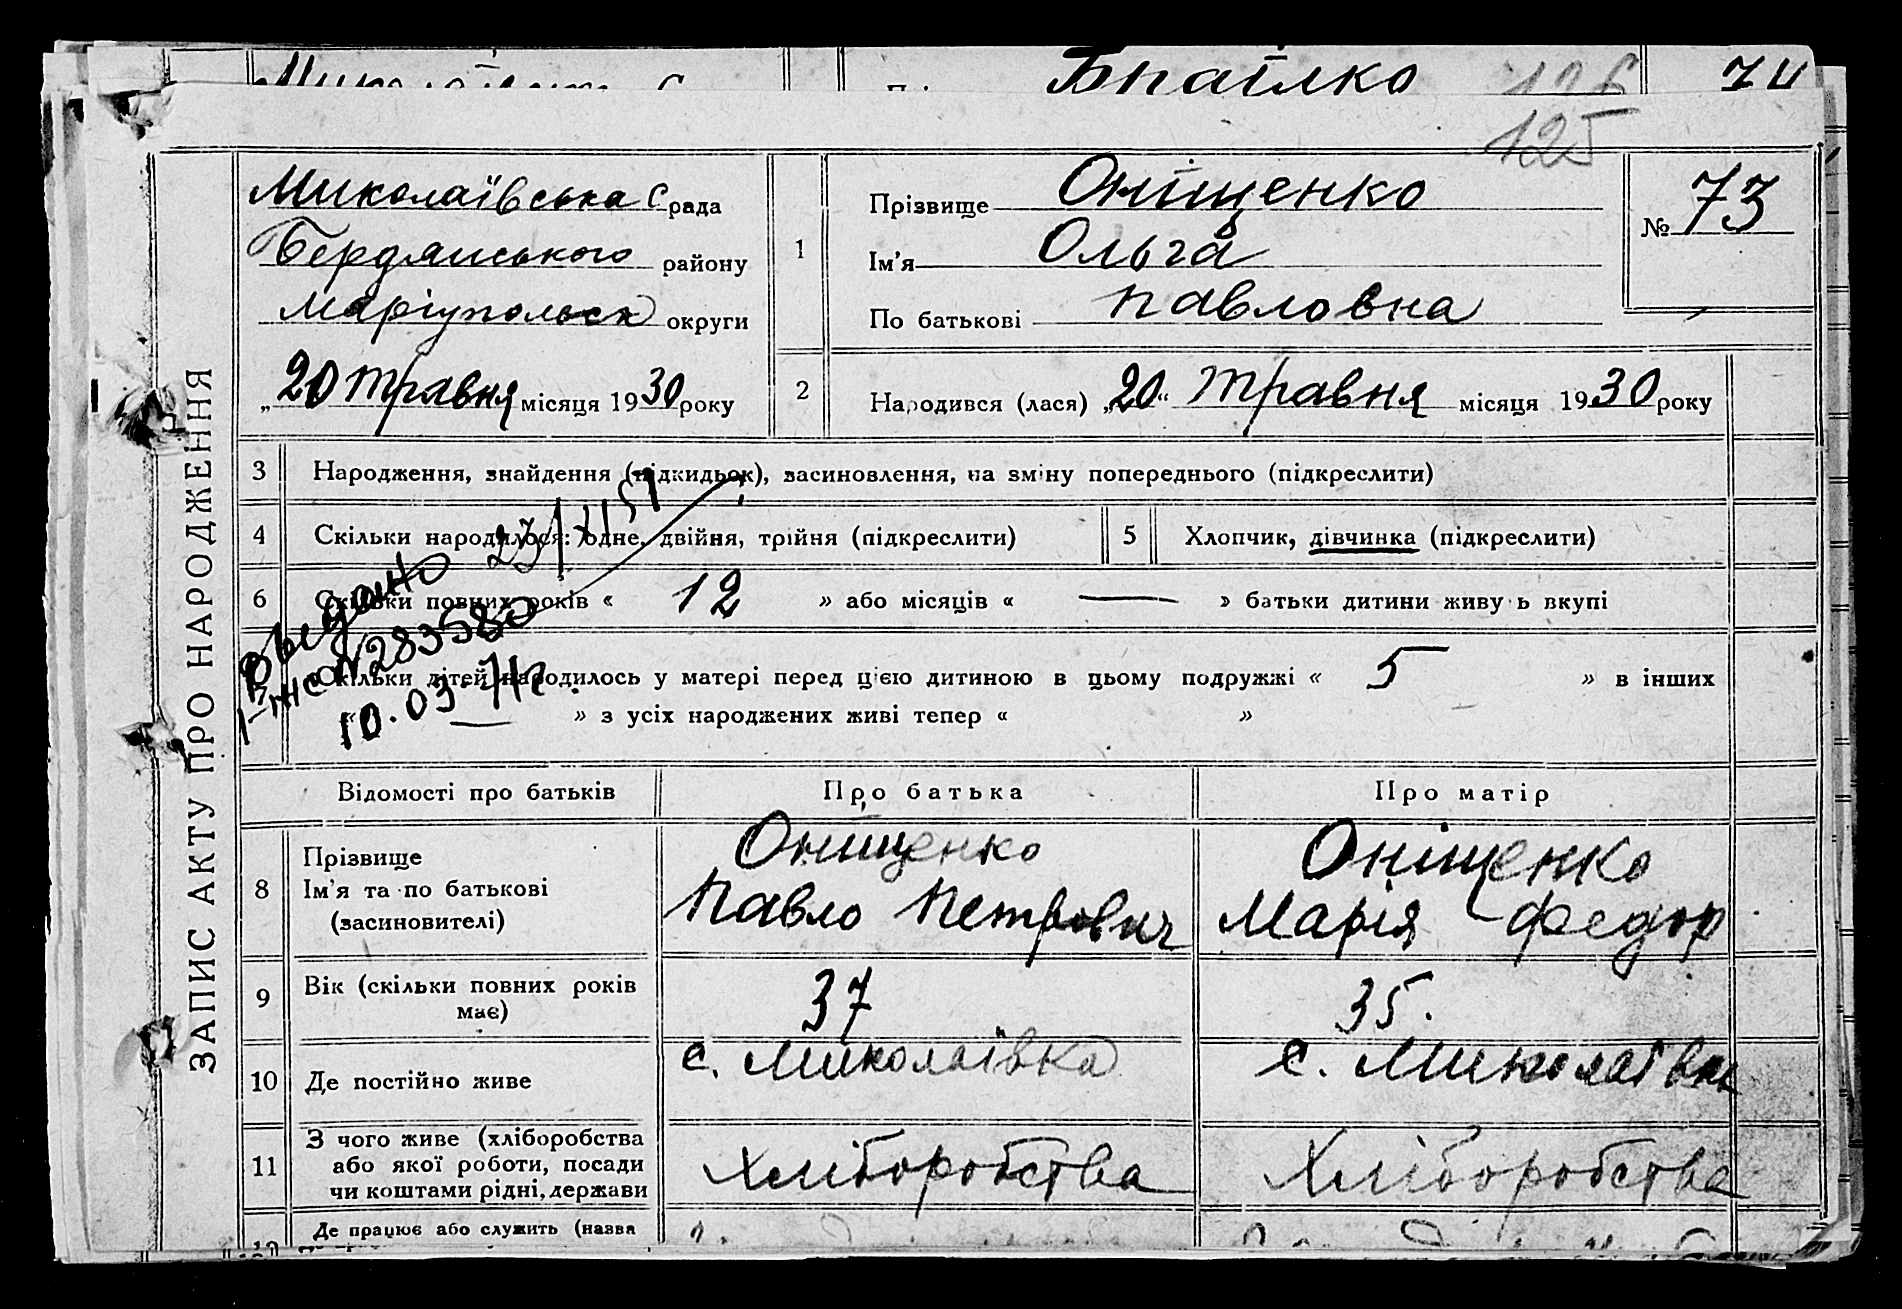 Браїлко 126
125
ЗАПИС АКТУ ПРО НАРОДЖЕННЯ
Миколаївська с рада
Бердянського району
Маріупольськ округи
„20 травня місяця 1930 року
1
Прізвище Оніщенко
Ім'я Ольга
По батькові Павловна
№ 73
2 Народився (лася) „20“ травня місяця 1930 року
3 Народження, знайдення (підкидьок), засиновлення, на зміну попереднього (підкреслити)
4 Скільки народилося: одне, двійня, трійня (підкреслити)
5 Хлопчик, дівчинка (підкреслити)
6 Скільки повних років « 12 » або місяців « — » батьки дитини живуть вкупі
Скільки дітей народилось у матері перед цією дитиною в цьому подружжі « 5 » в інших
« — » з усіх народжених живі тепер « »
Выдано 23/XI 51
283580
10.03.71г.
Відомості про батьків Про батька Про матір
8 Прізвище
Ім'я та по батькові
(засиновителі)
Оніщенко
Павло Петрович
Оніщенко
Марія Федор
9 Вік (скільки повних років
має)
37 35.
10 Де постійно живе с. Миколаївка с. Миколаївка
11 З чого живе (хліборобства
або якої роботи, посади
чи коштами рідні, держави
Хліборобства Хліборобства
Де працює або служить (назва